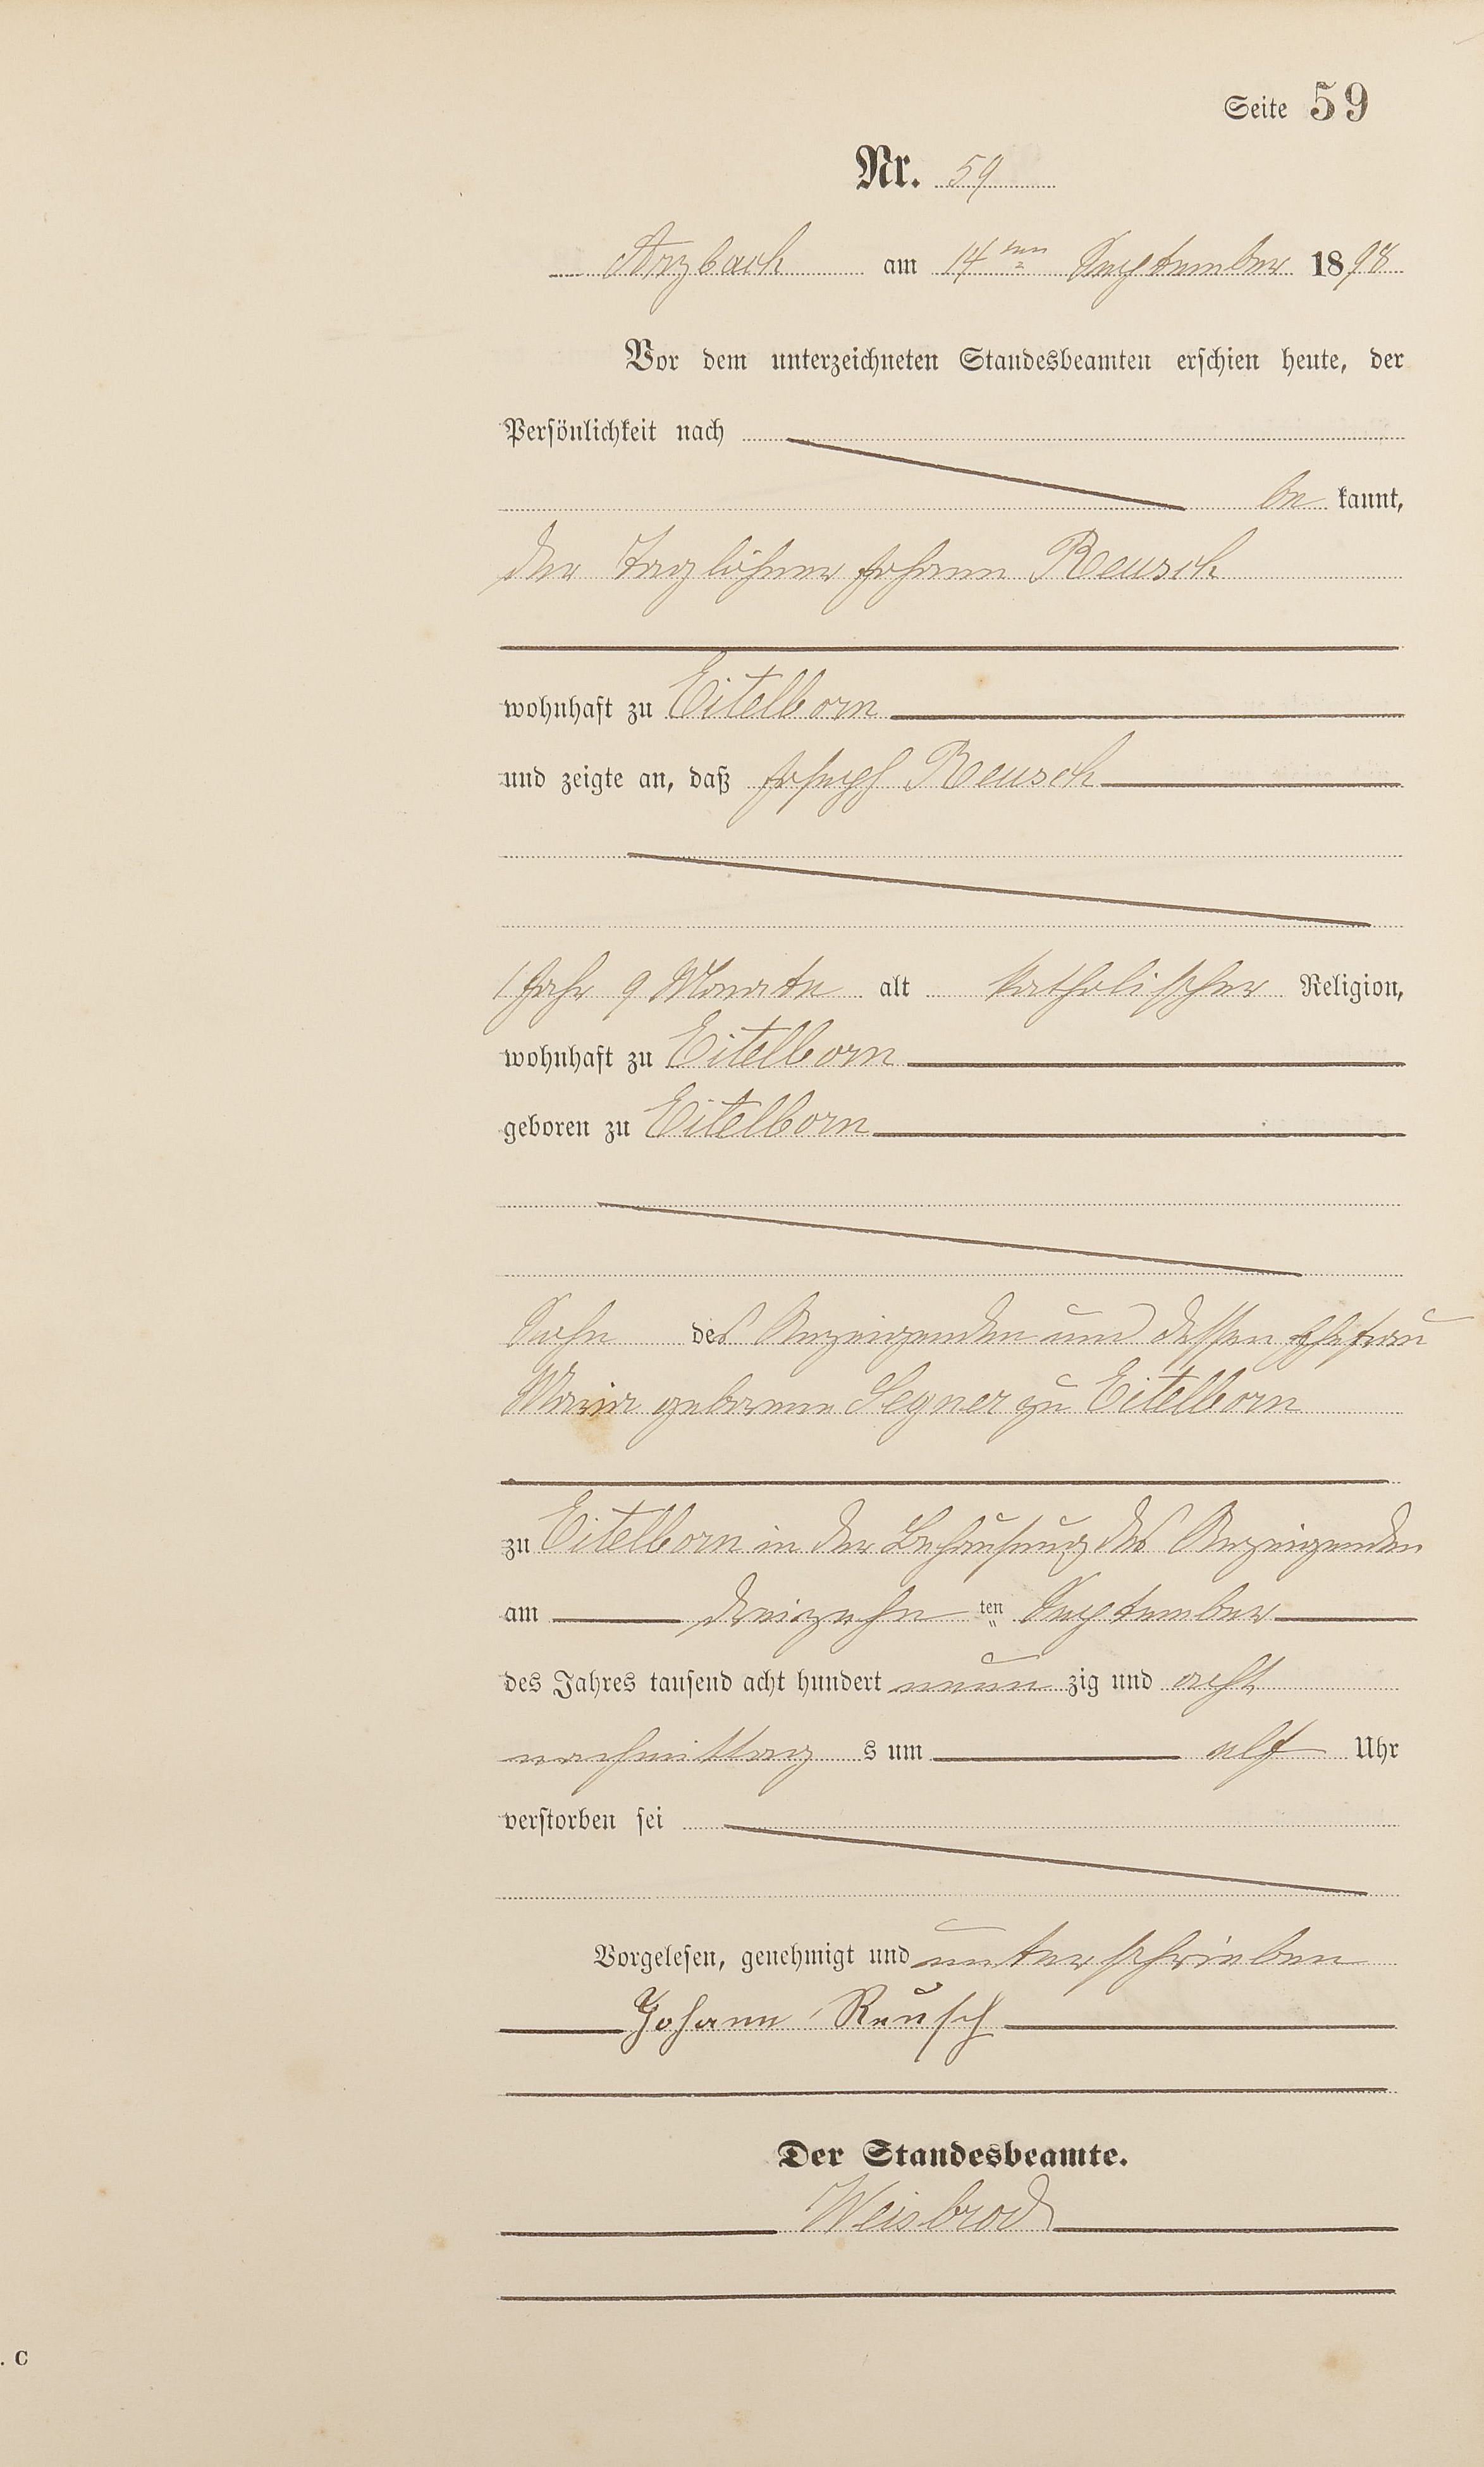 Seite 59
Nr. 59
Arzbach am 14ten September 1898
Vor dem unterzeichneten Standesbeamten erschien heute, der
Persönlichkeit nach
be kannt,
der Taglöhner Johann Reusch
wohnhaft zu Eitelborn
und zeigte an, daß Joseph Reusch
1 Jahr 9 Monate alt katholischer Religion,
wohnhaft zu Eitelborn
geboren zu Eitelborn
Sohn des Anzeigenden und dessen Ehefrau
Maria geborene Segner zu Eitelborn
zu Eitelborn in der Behausung des Anzeigenden
am dreizehn ten September
des Jahres tausend acht hundert neun zig und acht
nachmittag s um elf Uhr
verstorben sei
Vorgelesen, genehmigt und unterschrieben
Johann Reusch
Der Standesbeamte.
Weisbrod
. C